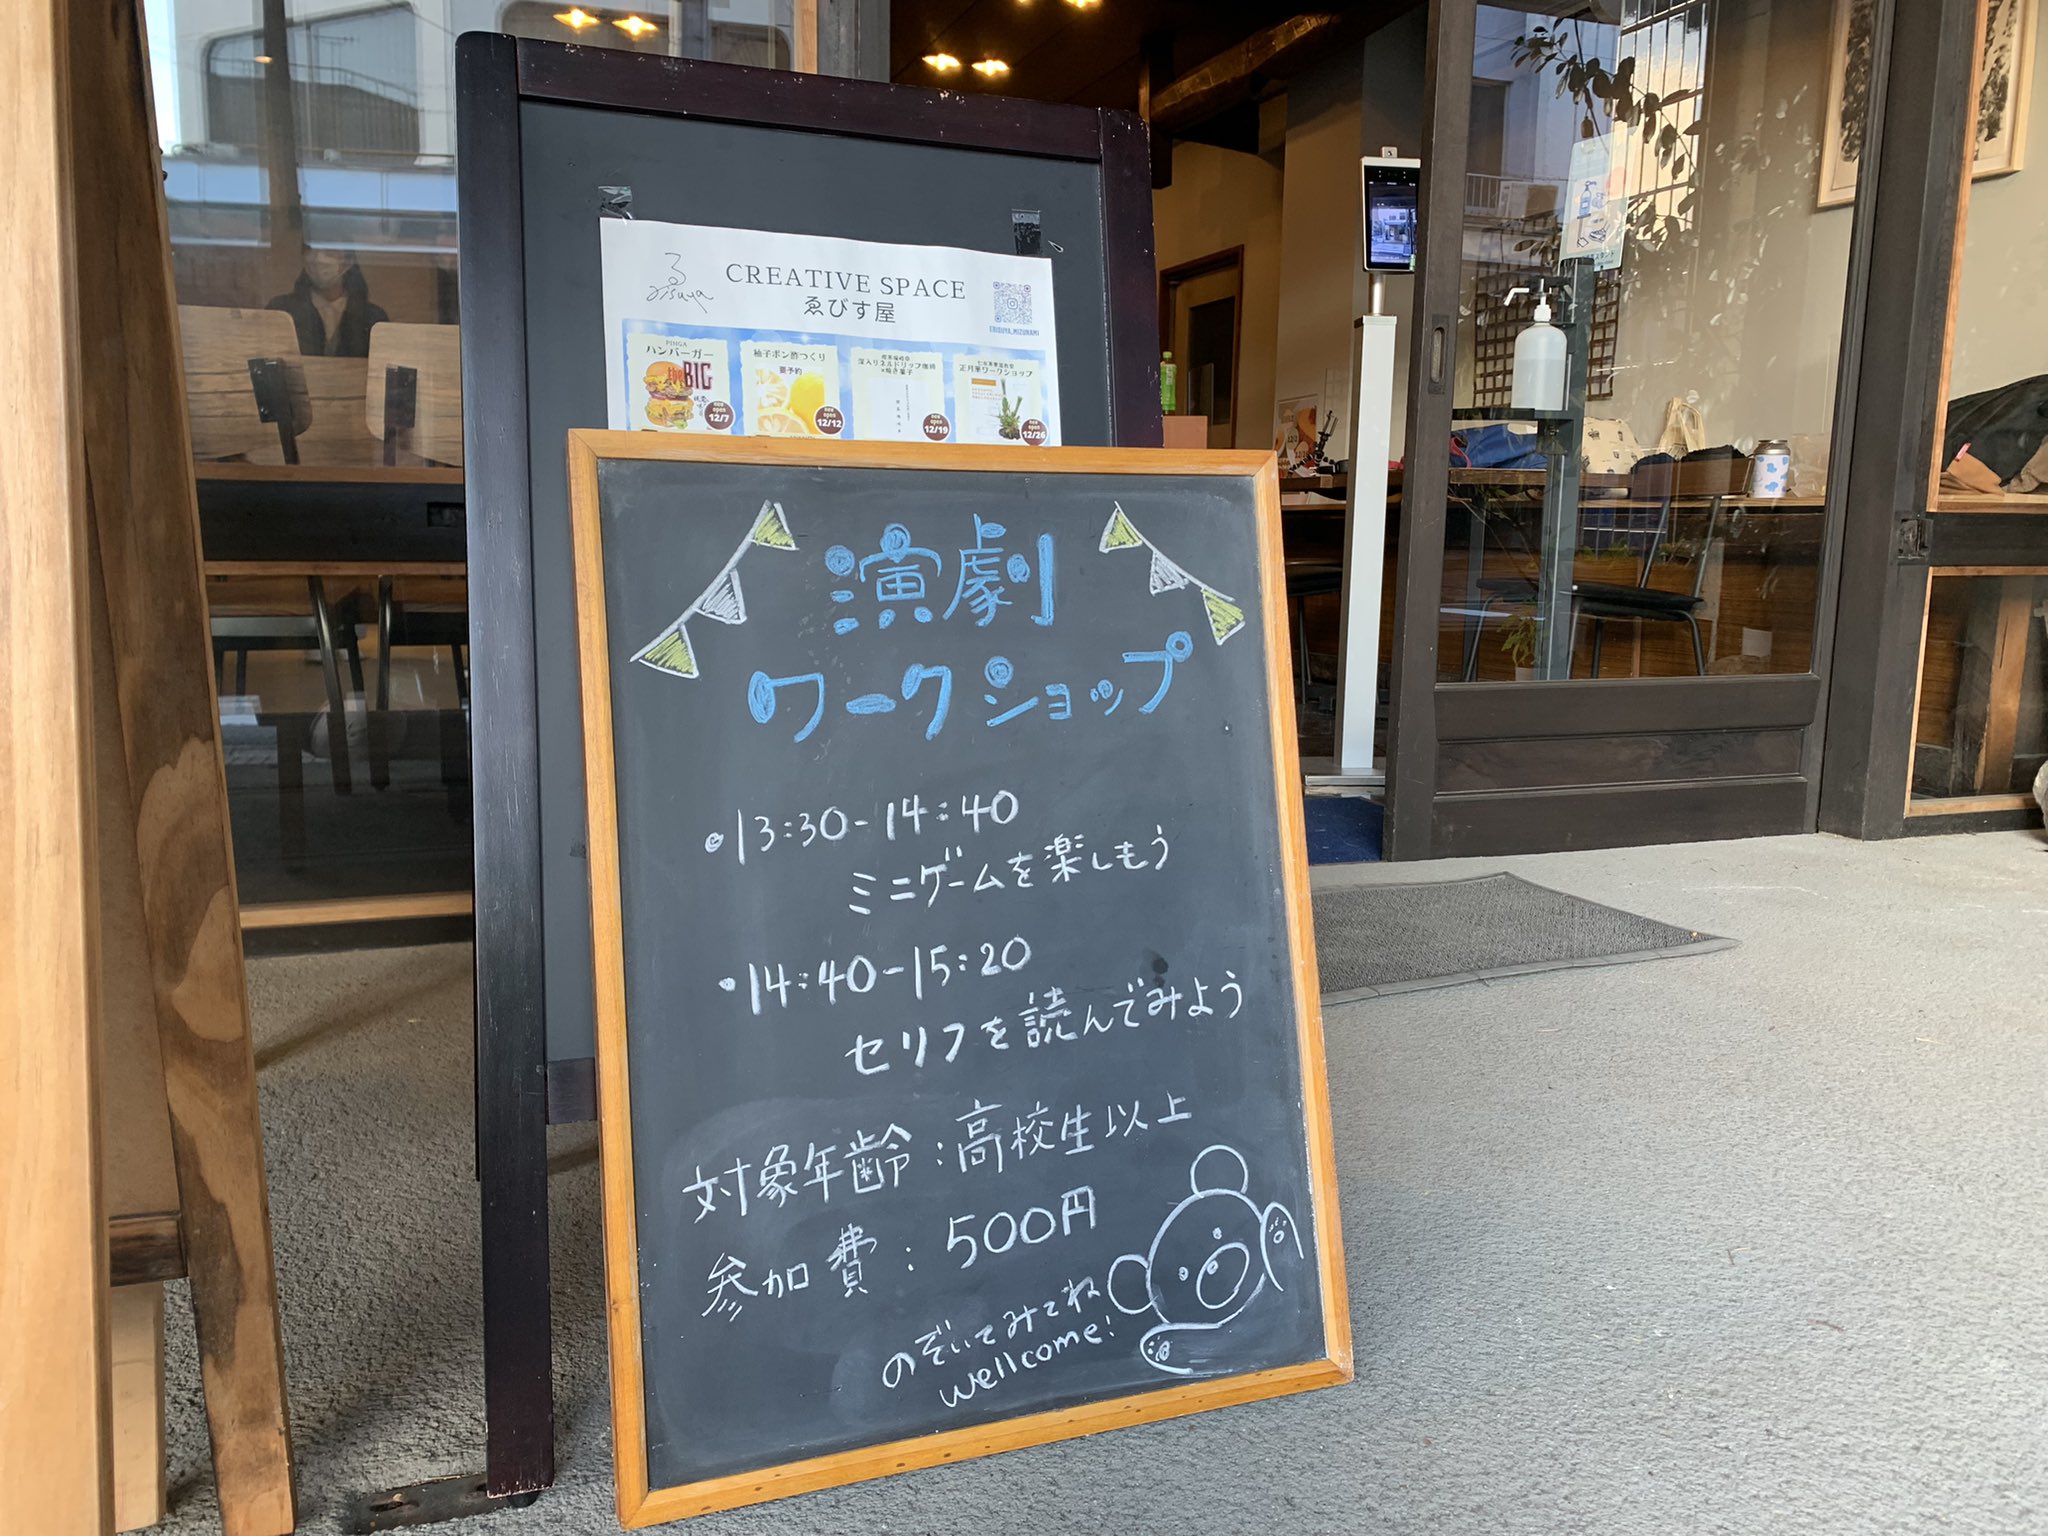 CREATIVE SPACE
ゑびす屋
EBISUYA_MIZUNAMI
PINGA
ハンバーガー
the BIG
12/7
柚子ポン酢つくり
要予約
12/12
深入りネルドリップ珈琲
×焼き菓子
12/19
正月華ワークショップ
12/26
演劇
ワークショップ
・13:30-14:40
ミニゲームを楽しもう
・14:40-15:20
セリフを読んでみよう
対象年齢:高校生以上
参加費:500円
のぞいてみてね
wellcome!